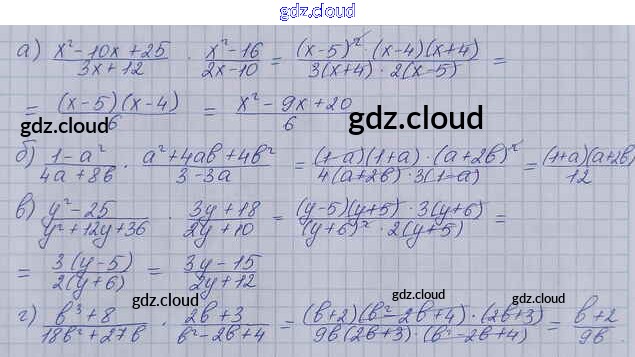 gdz.cloud
а) (x² - 10x + 25)/(3x + 12) · (x² - 16)/(2x - 10) = ((x-5)² · (x-4)(x+4))/(3(x+4) · 2(x-5)) =
= ((x-5)(x-4))/6 = (x² - 9x + 20)/6
gdz.cloud
gdz.cloud
gdz.cloud
б) (1 - a²)/(4a + 8b) · (a² + 4ab + 4b²)/(3 - 3a) = ((1-a)(1+a) · (a+2b)²)/(4(a+2b) · 3(1-a)) = ((1+a)(a+2b))/12
в) (y² - 25)/(y² + 12y + 36) · (3y + 18)/(2y + 10) = ((y-5)(y+5) · 3(y+6))/((y+6)² · 2(y+5)) =
= (3(y-5))/(2(y+6)) = (3y - 15)/(2y + 12)
gdz.cloud
gdz.cloud
г) (b³ + 8)/(18b² + 27b) · (2b + 3)/(b² - 2b + 4) = ((b+2)(b² - 2b + 4) · (2b+3))/(9b(2b+3) · (b² - 2b + 4)) = (b + 2)/(9b)
gdz.cloud
gdz.cloud
gdz.cloud